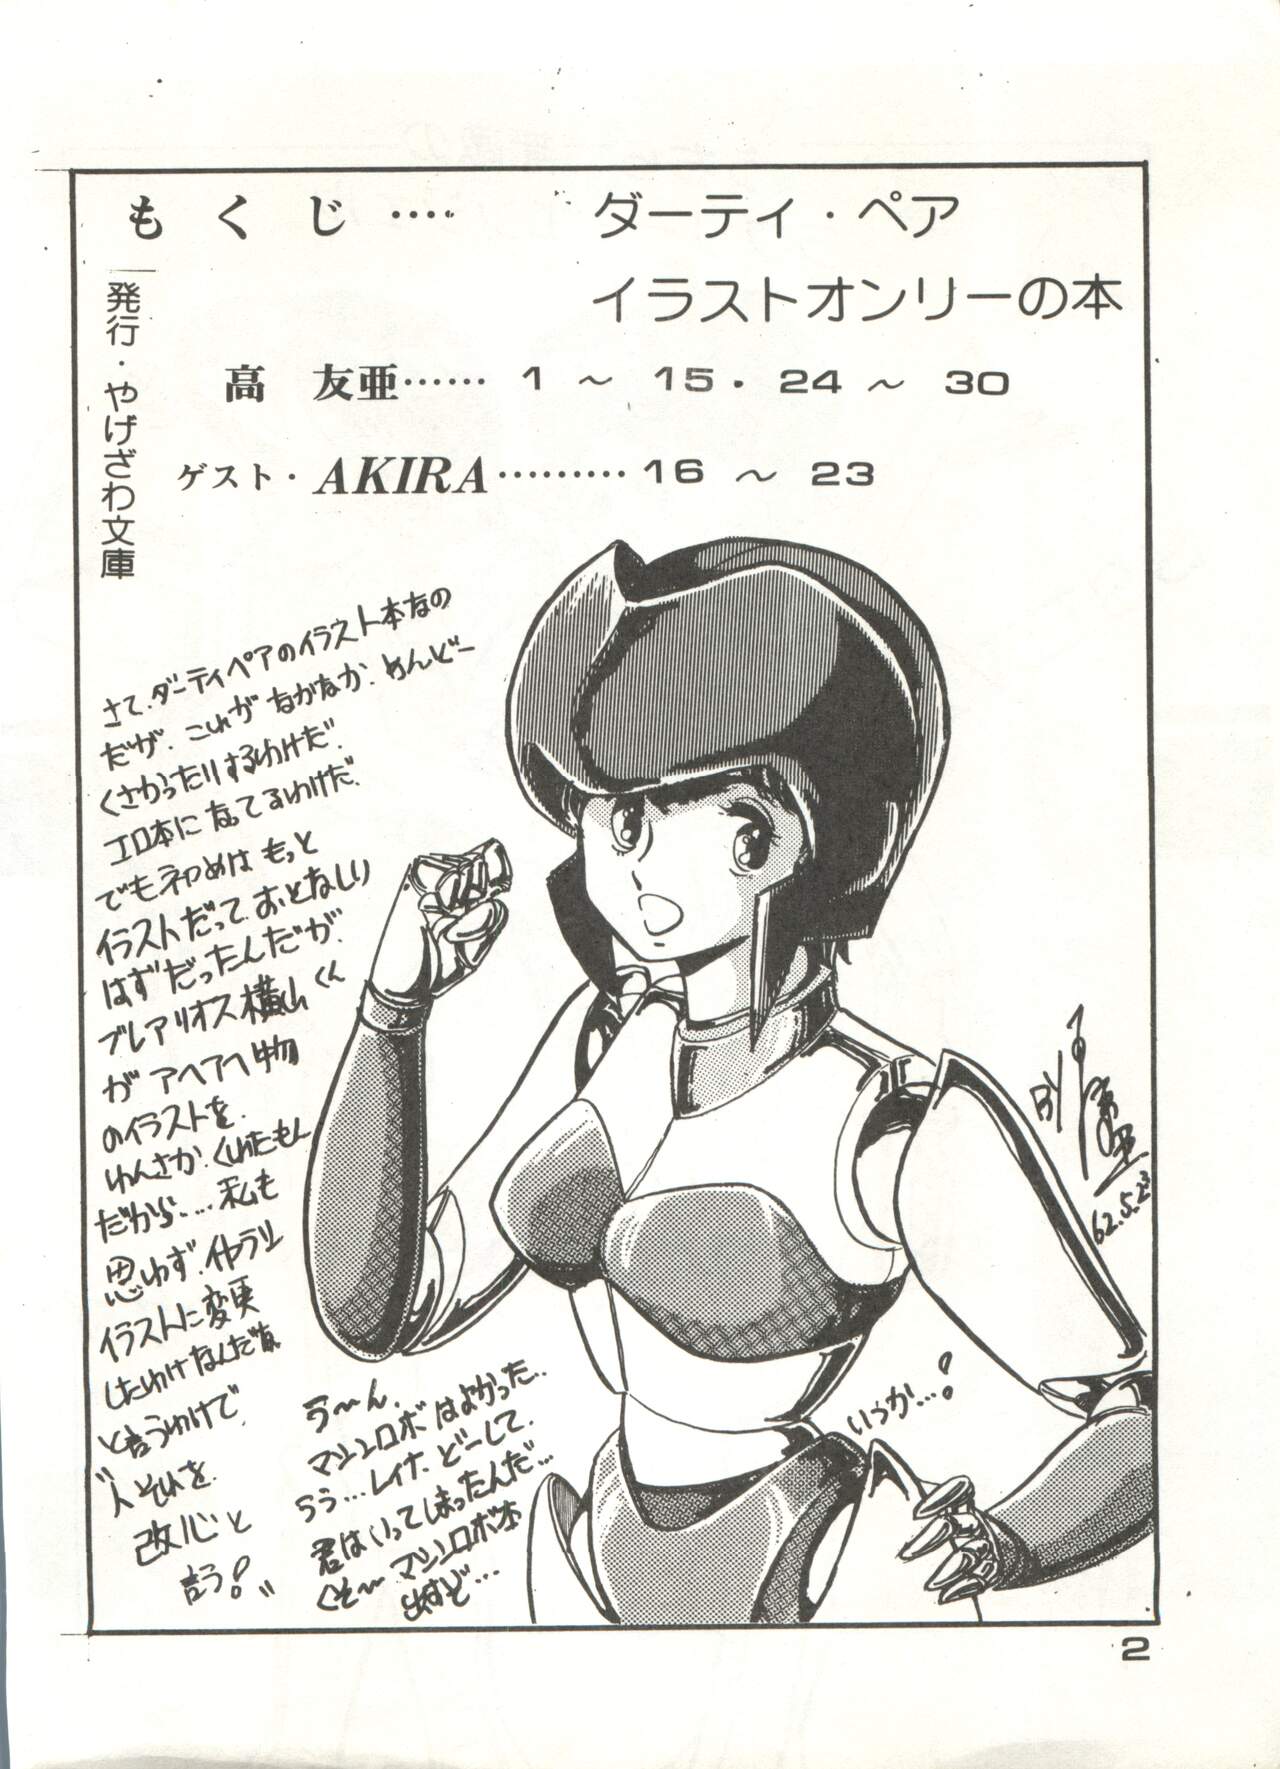 もくじ‥‥
ダーティ・ペア
イラストオンリーの本
高 友亜…… 1 ～ 15・24 ～ 30
ゲスト・AKIRA……… 16 ～ 23
発行・やげざわ文庫
さて、ダーティペアのイラスト本なの
だが、これがなかなか、めんどー
くさかったりするわけだ、
エロ本になってるわけだ、
でもネ初めは もっと
イラストだって おとなしい
はずだったんだが、
ブレアリオス横山くん
が アヘアヘ物
のイラストを、
わんさか、くれたもん
だから‥‥私も
思わず、イヤラシ
イラストに変更
したわけなんだな
と言うわけで、
"人それを
改心と
言う!"
う～ん、
マシンロボはよかった‥
らう…レイナ、どーして、
君はいってしまったんだ…
くそ～マシンロボ本
出すど…
いつか…!
BY
62.5.23
2